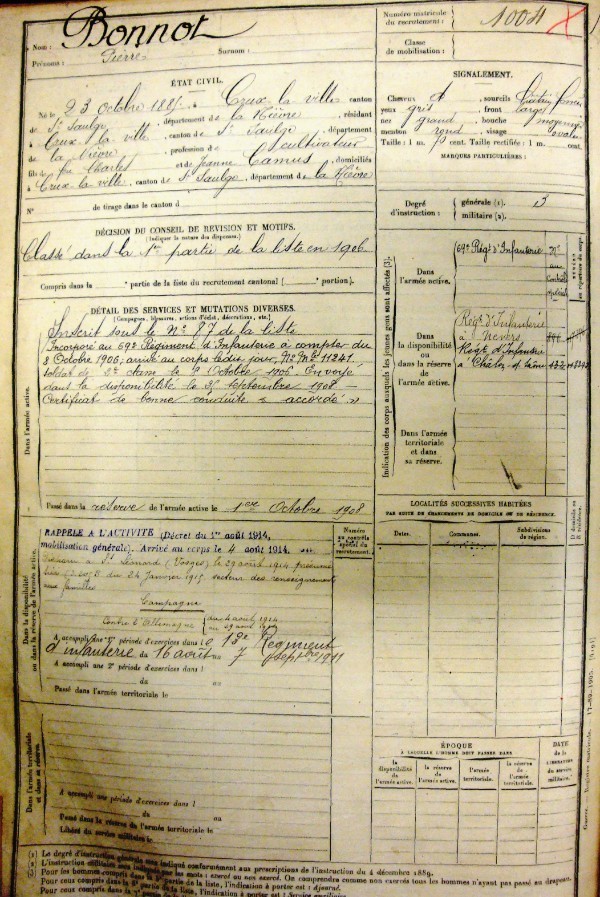 Nom : Bonnot
Prénoms : Pierre Surnom :
Numéro matricule du recrutement : 1004
Classe de mobilisation :
ÉTAT CIVIL.
Né le 23 octobre 1885, à Crux-la-ville canton
de St Saulge, département de la Nièvre, résidant
à Crux-la-ville, canton de St Saulge, département
de la Nièvre, profession de cultivateur
fils de feu Charles et de Jeanne Camus, domiciliés
à Crux-la-ville, canton de St Saulge, département de la Nièvre
N° de tirage dans le canton d
SIGNALEMENT.
Cheveux et sourcils
yeux gris, front large
nez grand, bouche moyenne
menton rond, visage ovale
Taille : 1 m. cent. Taille rectifiée : 1 m. cent.
MARQUES PARTICULIÈRES :
Degré d'instruction : générale (1). 3
militaire (2).
DÉCISION DU CONSEIL DE REVISION ET MOTIFS.
(Indiquer la nature des dispenses.)
Classé dans la 1re partie de la liste en 1906.
Compris dans la e partie de la liste du recrutement cantonal ( e portion).
DÉTAIL DES SERVICES ET MUTATIONS DIVERSES.
(Campagnes, blessures, actions d'éclat, décorations, etc.)
Inscrit sous le No 87 de la liste
Incorporé au 69e Régiment d'Infanterie à compter du
8 Octobre 1906; arrivé au corps ledit jour, No Mle 11241.
soldat de 2e classe le Octobre 1906. Envoyé
dans la disponibilité le Septembre 1908 –
Certificat de bonne conduite « accordé »
Dans l'armée active.
Passé dans la réserve de l'armée active le 1er Octobre 1908
Indication des corps auxquels les jeunes gens sont affectés (3).
Dans l'armée active.
69e Régt d'Infanterie
Dans la disponibilité ou dans la réserve de l'armée active.
Régt d'Infanterie
à Nevers
Régt d'Infanterie
à Chalon s/ Saône
Dans l'armée territoriale et dans sa réserve.
RAPPELÉ A L'ACTIVITÉ (Décret du 1er août 1914,
mobilisation générale). Arrivé au corps le 4 août 1914.
à St Léonard (Vosges) le 29 août 1914
du 24 Janvier 1915 secteur des renseignements
aux familles
Campagne
Contre l'Allemagne du 4 août 1914
au 29 août 1914
A accompli une 1re période d'exercices dans l 13e Régiment
d'infanterie du 16 août au 7 septbre 1911
A accompli une 2e période d'exercices dans l
du au
Passé dans l'armée territoriale le
Dans la disponibilité ou dans la réserve de l'armée active.
Numéro au contrôle spécial du recrutement.
LOCALITÉS SUCCESSIVES HABITÉES
PAR SUITE DE CHANGEMENTS DE DOMICILE OU DE RÉSIDENCE.
Dates. Communes. Subdivisions de région. D domicile ou R résidence.
Dans l'armée territoriale et dans sa réserve.
A accompli une période d'exercices dans l
du au
Passé dans la réserve de l'armée territoriale le
Libéré du service militaire le
ÉPOQUE
À LAQUELLE L'HOMME DOIT PASSER DANS
la disponibilité de l'armée active. la réserve de l'armée active. l'armée territoriale. la réserve de l'armée territoriale.
DATE de la LIBÉRATION du service militaire.
(1) Le degré d'instruction générale sera indiqué conformément aux prescriptions de l'instruction du 4 décembre 1889.
(2) L'instruction militaire sera indiquée par les mots : exercé ou non exercé. On comprendra comme non exercés tous les hommes n'ayant pas passé au drapeau.